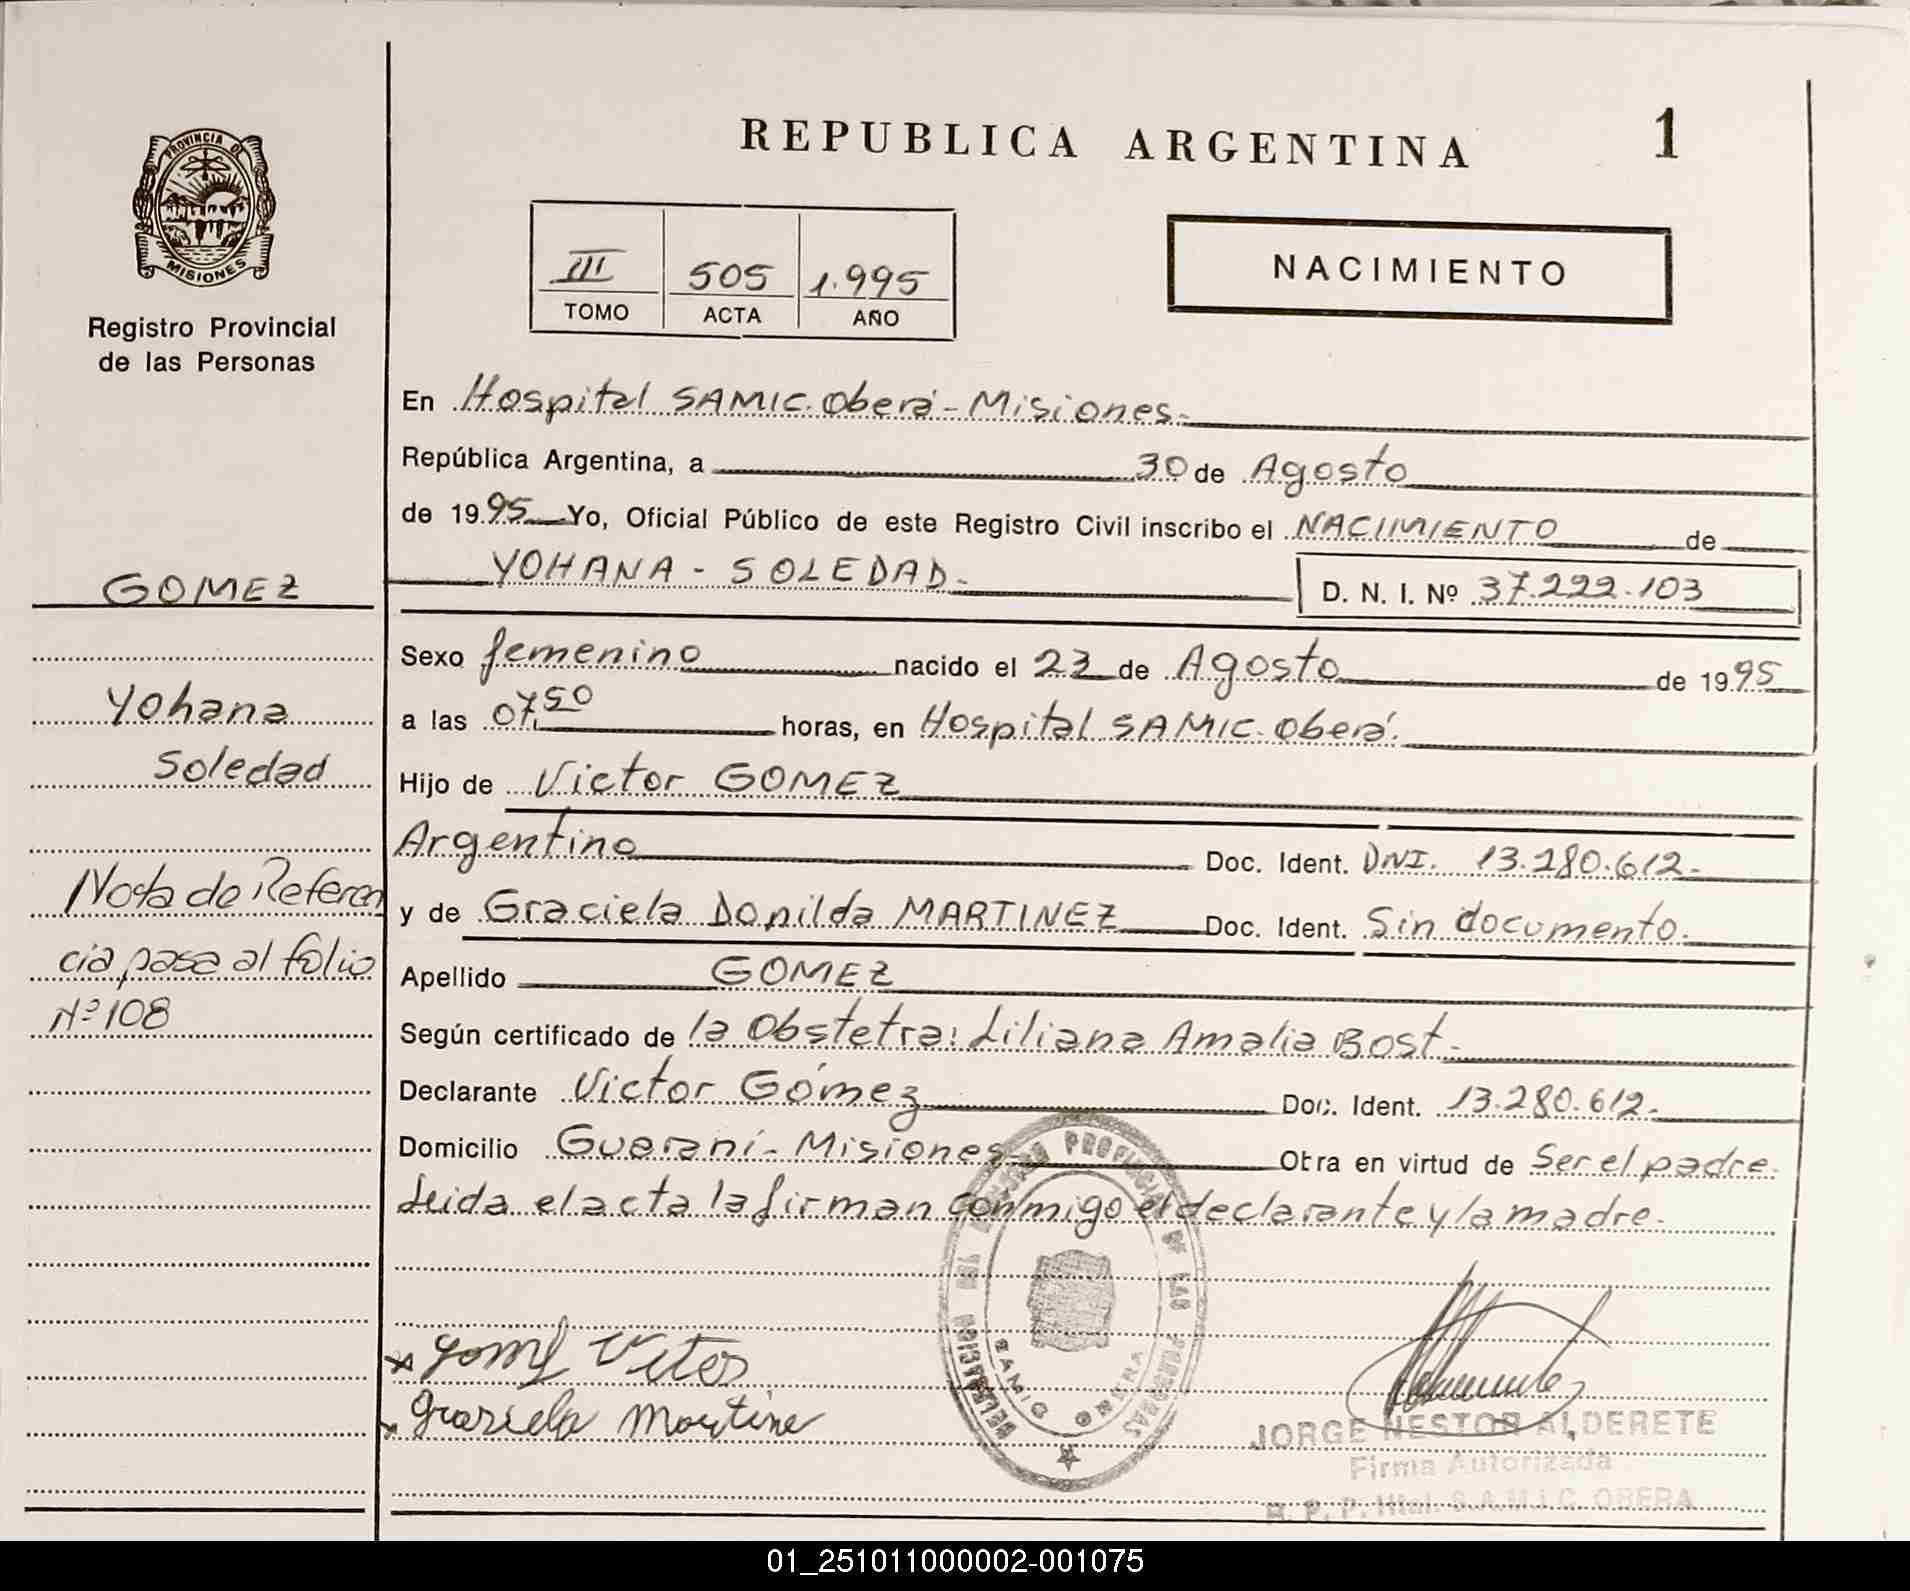 PROVINCIA DE
MISIONES
Registro Provincial
de las Personas
GOMEZ
Yohana
Soledad
Nota de Referen
cia pasa al folio
Nº 108
REPUBLICA ARGENTINA 1
III 505 1.995
TOMO ACTA AÑO
NACIMIENTO
En Hospital SAMIC. Oberá - Misiones.
República Argentina, a 30 de Agosto
de 1995 Yo, Oficial Público de este Registro Civil inscribo el NACIMIENTO de
YOHANA - SOLEDAD.
D. N. I. Nº 37.222.103
Sexo femenino nacido el 23 de Agosto de 1995
a las 07,50 horas, en Hospital SAMIC. Oberá.
Hijo de Victor GOMEZ
Argentino Doc. Ident. DNI. 13.280.612.
y de Graciela MARTINEZ Doc. Ident. Sin documento.
Apellido GOMEZ
Según certificado de la Obstetra: Liliana Amalia Bost.
Declarante Victor Gómez Doc. Ident. 13.280.612.
Domicilio Guaraní - Misiones Obra en virtud de Ser el padre.
Leida el acta la firman conmigo el declarante y la madre.
DELEGACION DEL REGISTRO PROVINCIAL DE LAS PERSONAS
SAMIC OBERA
x Gomez Victor
x Graciela Martine
JORGE NESTOR ALDERETE
Firma Autorizada
R. P. P. Htal. S.A.M.I.C. OBERA
01_251011000002-001075